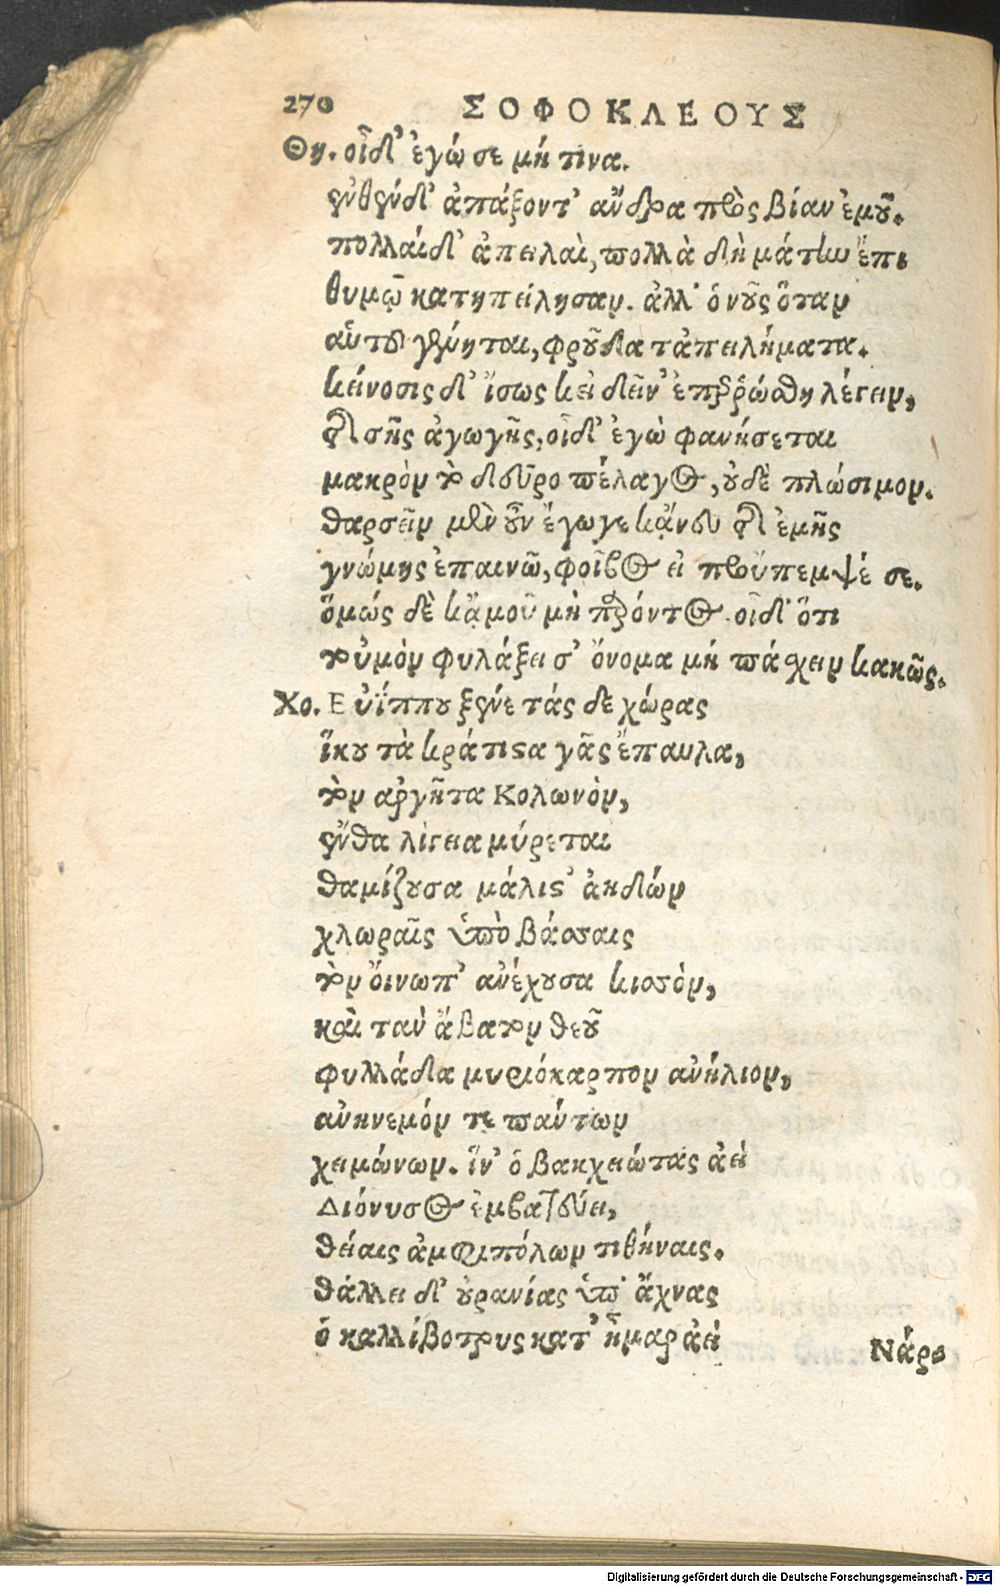 270 ΣΟΦΟΚΛΕΟΥΣ
Θη. οἶδ' ἐγώ σε μή τινα.
ἐνθένδ' ἀπάξοντ' ἄνδρα πρὸς βίαν ἐμοῦ.
πολλαί δ' ἀπειλαὶ, πολλὰ δὴ μάτην ἔπι
θυμῷ κατηπείλησαν. ἀλλ' ὁ νοῦς ὅταν
αὑτοῦ γένηται, φροῦδα τἀπειλήματα.
κείνοσις δ' ἴσως κεἰ δεῖν' ἐπεῤῥώσθη λέγειν,
τῆ σῆς ἀγωγῆς, οἶδ' ἐγὼ φανήσεται
μακρὸν τὸ δεῦρο πέλαγος, οὐδὲ πλώσιμον.
θαρσεῖν μὲν οὖν ἔγωγε κἄνευ τῆ ἐμῆς
γνώμης ἐπαινῶ, φοῖβος εἰ προὔπεμψέ σε.
ὅμως δὲ κἀμοῦ μὴ παρόντος οἶδ' ὅτι
τοὐμὸν φυλάξει σ' ὄνομα μὴ πάσχειν κακῶς.
Χο. Εὐΐππου ξένε τάς δε χώρας
ἵκου τὰ κράτιστα γᾶς ἔπαυλα,
τὸν ἀργῆτα Κολωνὸν,
ἔνθα λίγεια μύρεται
θαμίζουσα μάλιστ' ἀηδών
χλωραῖς ὑπὸ βάσσαις
τὸν οἴνωπ' ἀνέχουσα κισσὸν,
καὶ τὰν ἄβατον θεοῦ
φυλλάδα μυριόκαρπον ἀνήλιον,
ἀνήνεμόν τε πάντων
χειμώνων. ἵν' ὁ βακχειώτας ἀεὶ
Διόνυσος ἐμβατεύει,
θείαις ἀμφιπόλων τιθήναις.
θάλλει δ' οὐρανίας ὑπ' ἄχνας
ὁ καλλίβοτρυς κατ' ἦμαρ ἀεὶ
Νάρσ
Digitalisierung gefördert durch die Deutsche Forschungsgemeinschaft - DFG